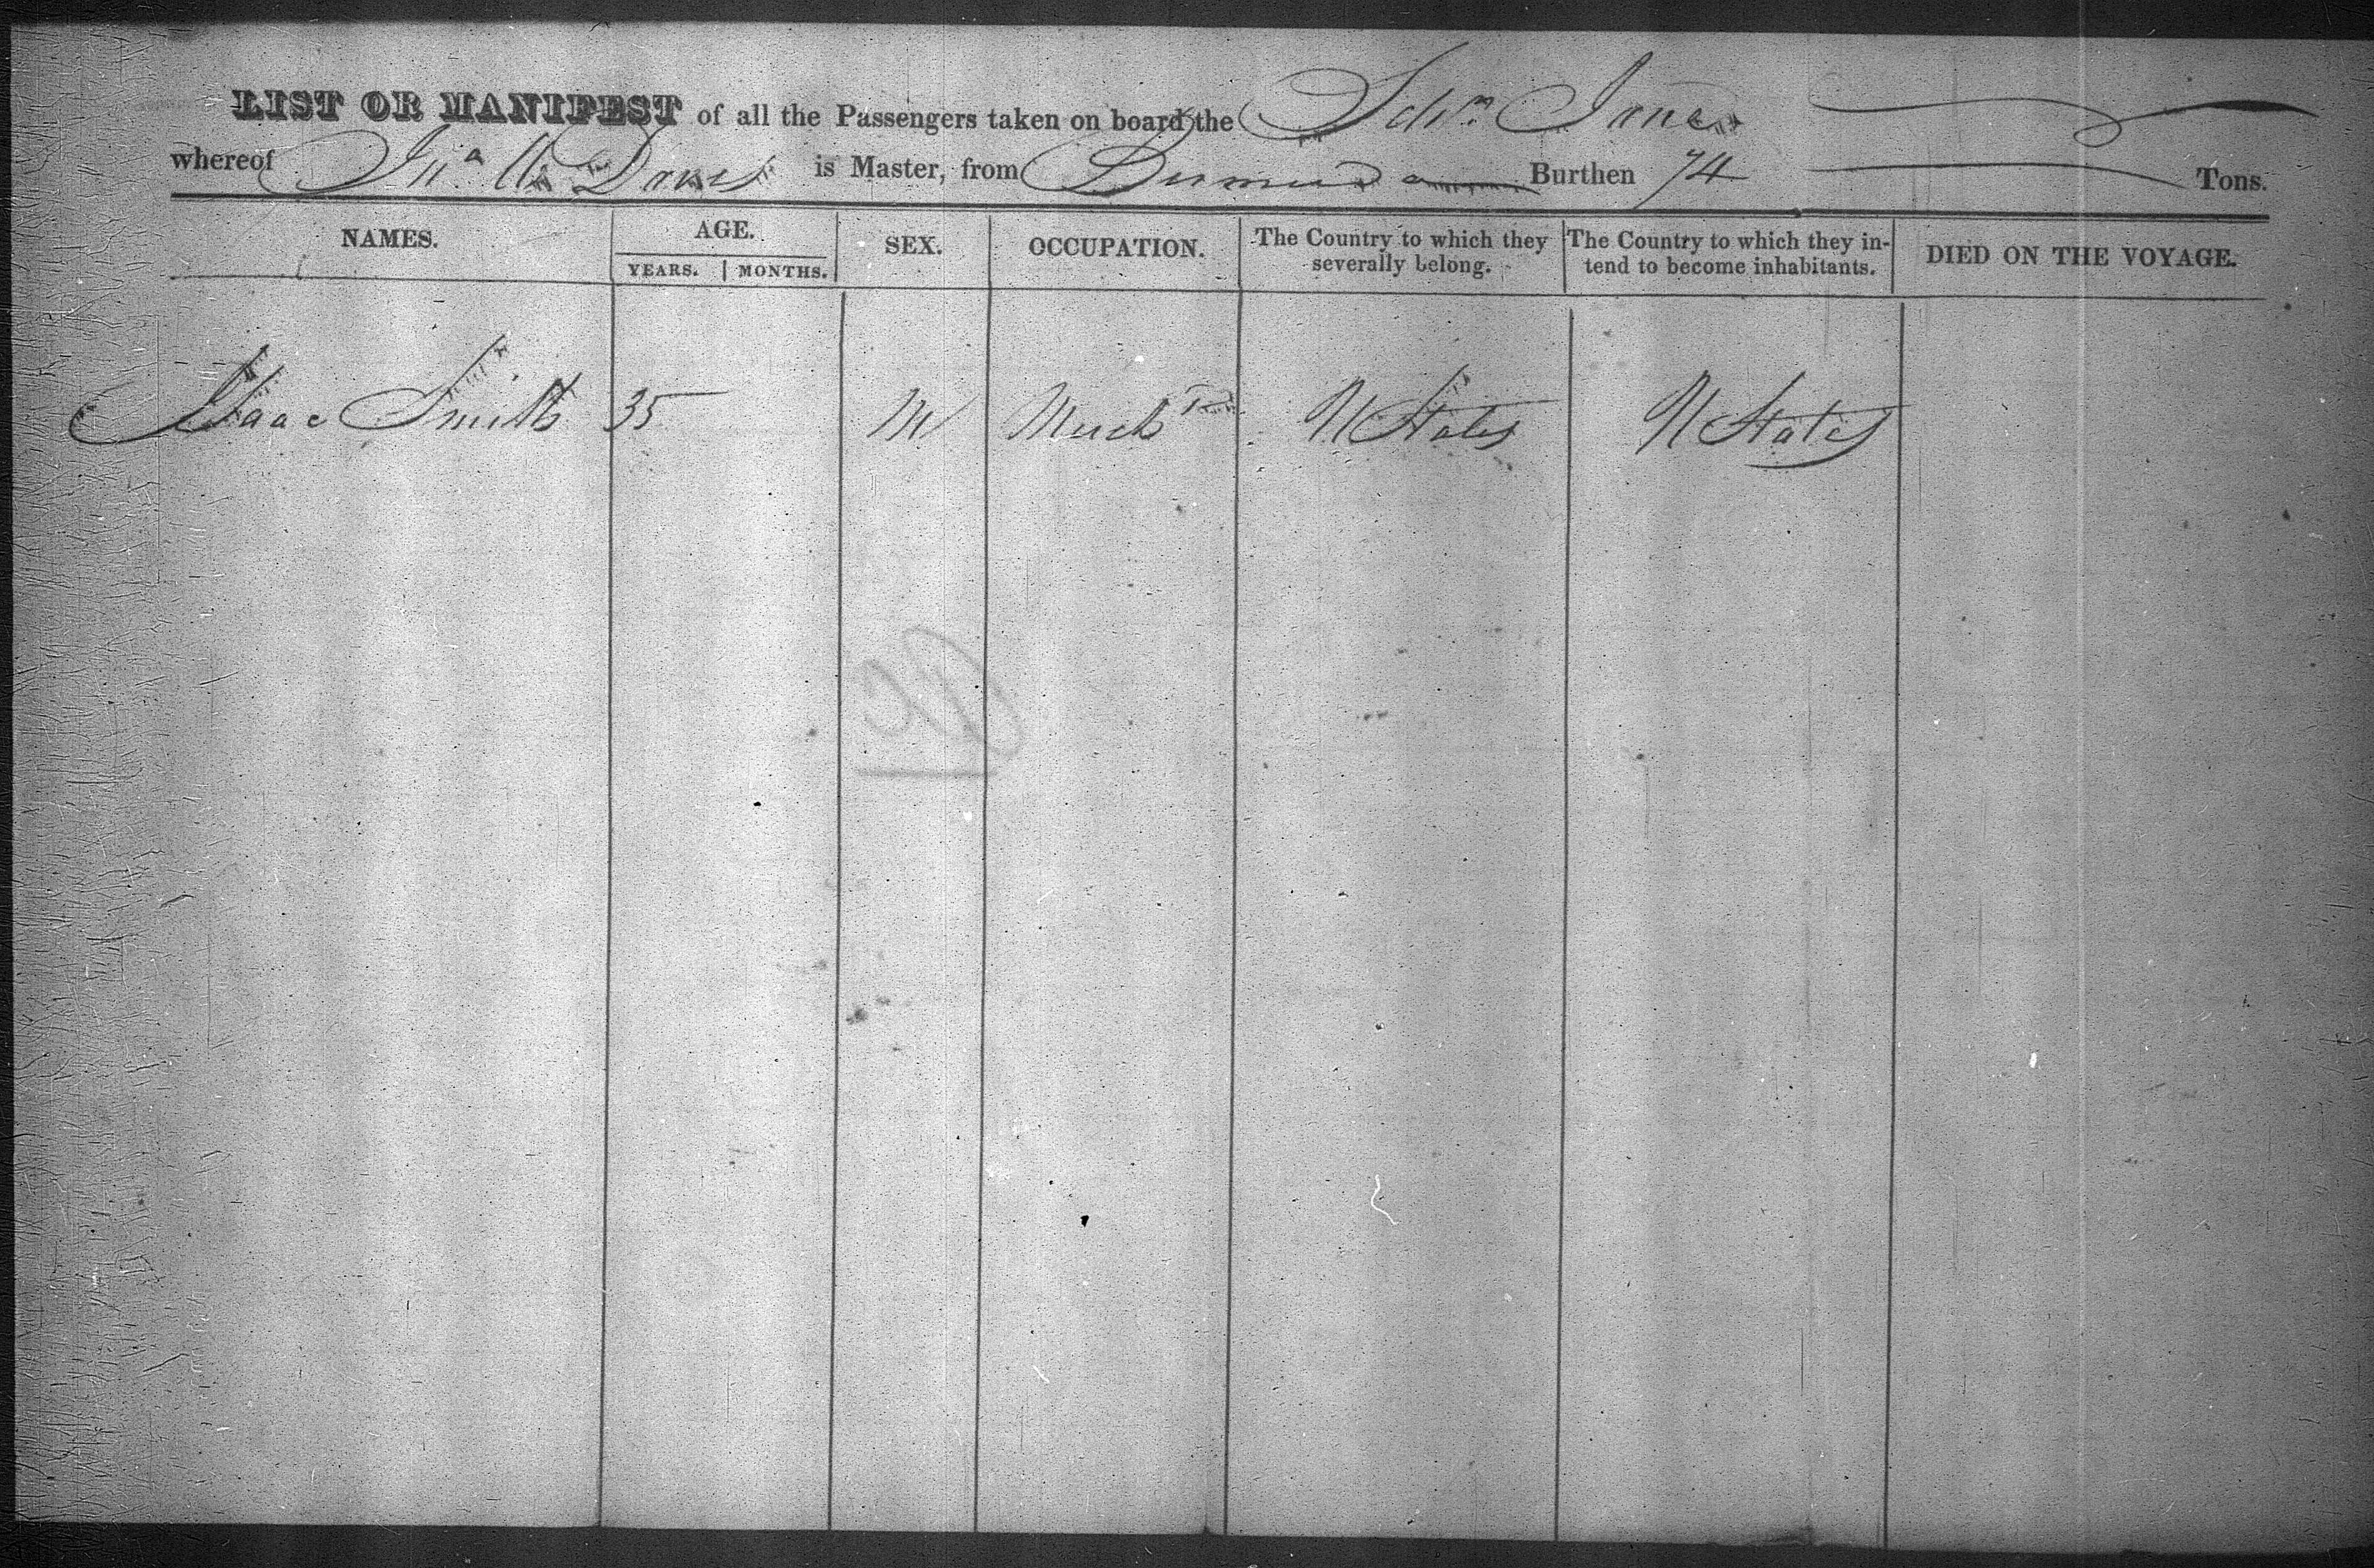 LIST OR MANIFEST of all the Passengers taken on board the Schr. Jane
whereof Jna W. Davis is Master, from Bermuda Burthen 74 Tons.
NAMES. AGE. SEX. OCCUPATION. The Country to which they severally belong. The Country to which they in-
tend to become inhabitants. DIED ON THE VOYAGE.
YEARS. MONTHS.
Isaac Smith 35 M Mercht U States U States